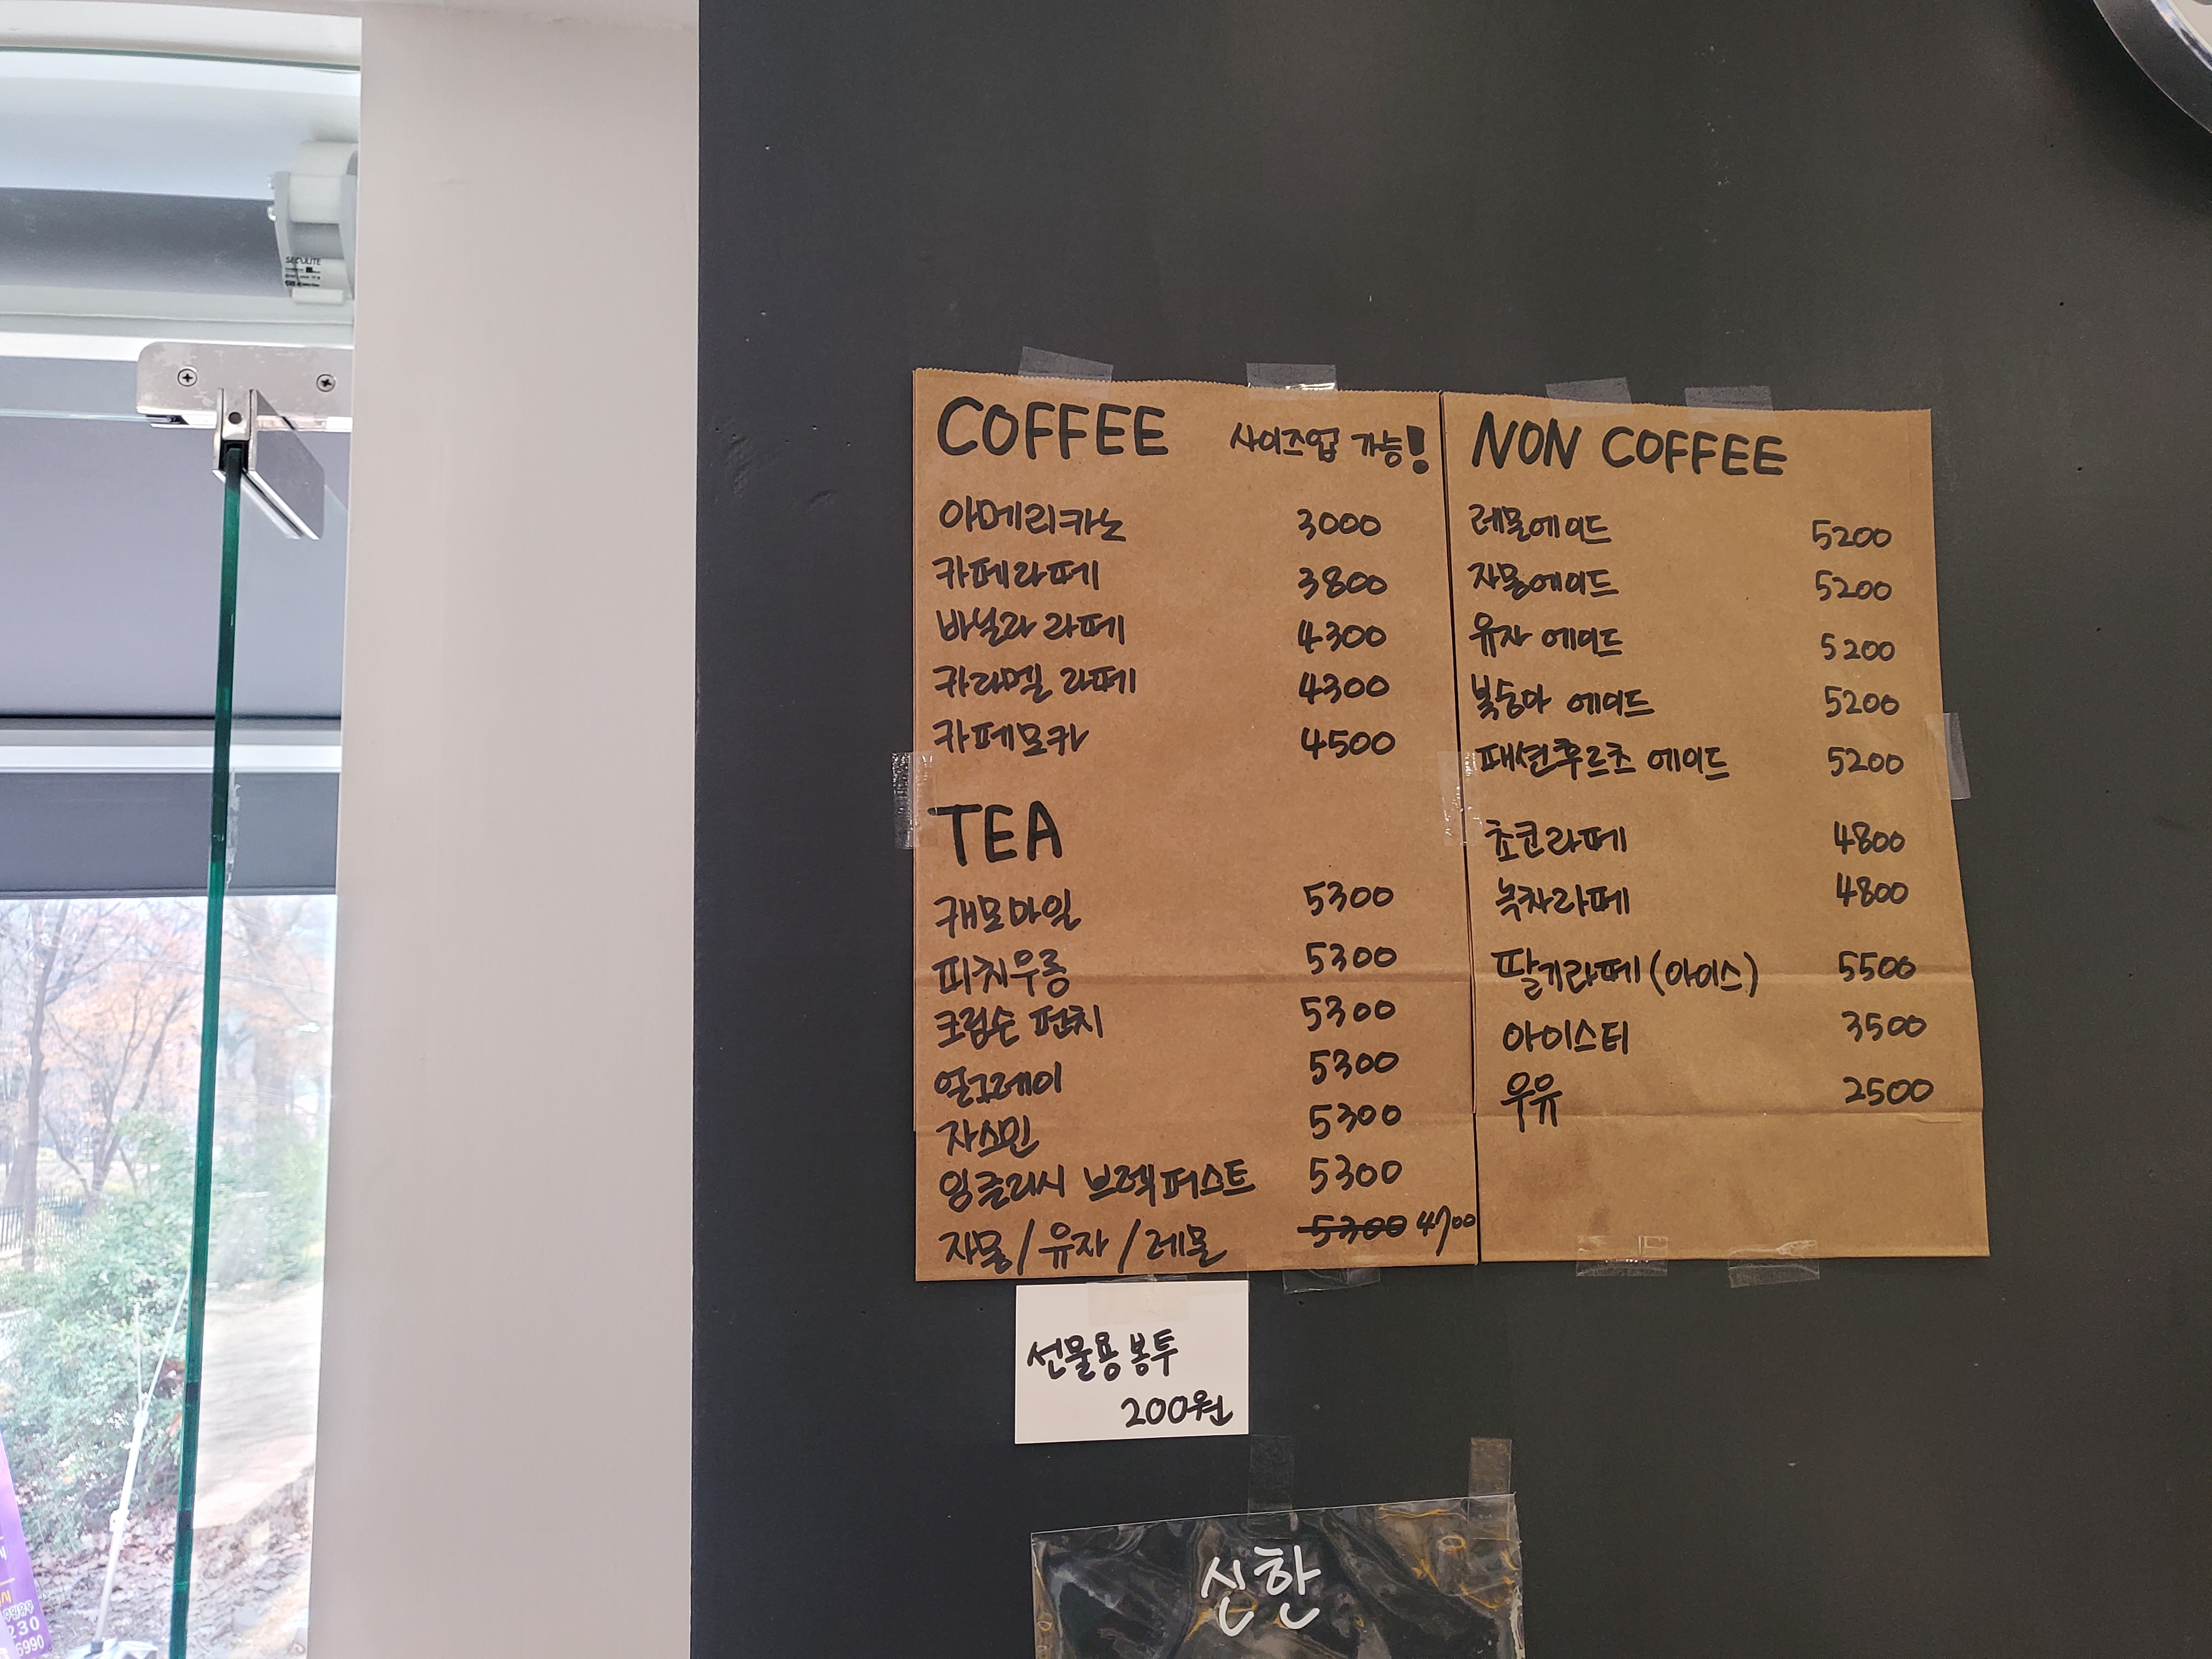 SECULITE
COFFEE 사이즈업 가능!
아메리카노 3000
카페라떼 3800
바닐라 라떼 4300
카라멜 라떼 4300
카페모카 4500
TEA
캐모마일 5300
피치우롱 5300
크림슨 펀치 5300
얼그레이 5300
자스민 5300
잉글리시 브렉퍼스트 5300
자몽/유자/레몬 5300 4700
NON COFFEE
레몬에이드 5200
자몽에이드 5200
유자 에이드 5200
복숭아 에이드 5200
패션후르츠 에이드 5200
초코라떼 4800
녹차라떼 4800
딸기라떼(아이스) 5500
아이스티 3500
우유 2500
선물용 봉투
200원
신한
230
6990